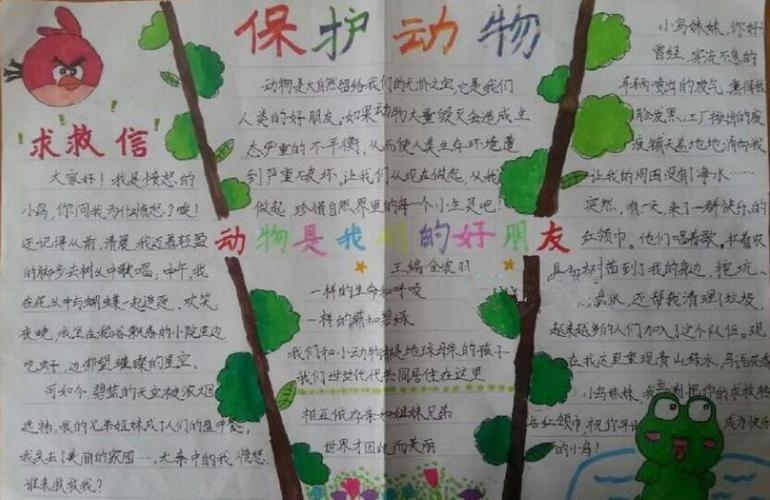 保护动物
动物是大自然留给我们的无价之宝,它是我们
人类的好朋友。如果动物大量毁灭会造成生
态严重的不平衡,从而使人类生存环境遭
到严重破坏,让我们从现在做起,从我
做起,珍惜自然界里的每一个小生灵吧!
求救信
大家好!我是愤怒的
小鸟,你问我为什么愤怒?唉!
还记得从前,清晨,我迈着轻盈
的脚步去树丛中歌唱;中午,我
在花丛中与蝴蝶一起追逐、欢笑
夜晚,依坐在稻谷飘香的小院里边
吃虫子,边仰望璀璨的星空。
可如今 碧蓝的天空被浓烟
遮挡,我的兄弟姐妹成了人们的盘中餐,
我失去了美丽的家园…,大条中的我 愤怒,
谁来救救我?
动物是我们的好朋友
主编
一样的生命和呼吸
一样的蔚和碧绿
我们和小动物都是地球母亲的孩子
我们世世代代共同居住在这里
相互依存亲如姐妹兄弟
世界才因此而美丽
小鸟妹妹,你好!
曾经,穿流不息的
车辆喷出的废气,熏得我
脸发黑,工厂排出的废
液铺天盖地地涌向我
让我的周围没有净水……
突然,有一天,来了一群快乐的
红领巾。他们唱着歌,
具和树苗到了我的身边,挖坑、
还帮我清理了垃圾,
越来越多的人们加入了这个队伍。现
在我这里重现青山绿水,鸟语花香
小鸟妹妹,我 把你的求救信
给红领巾,祝你早日 成为快乐
的小鸟!